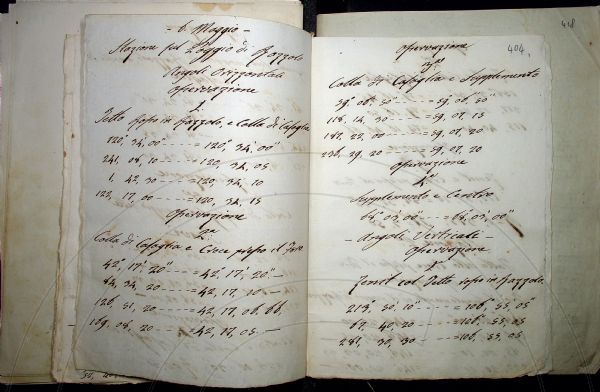 - 6. Maggio -
Stazione sul Poggio di Gazzolo
Angoli Orizzontali
Osservazione
1.ª
Tetto rosso in Gazzolo, e Colla di Casaglia
120°, 34, 00" - - - = 120°, 34, 00"
241, 08, 10 - - - = 120, 34, 05
1, 42, 30 - - - = 120, 34, 10
122, 17, 00 - - - = 120, 34, 15
Osservazione
2.ª
Colla di Casaglia e Croce presso il
42°, 17', 20" - - - = 42, 17', 20" -
84, 34, 20 - - - = 42, 17, 10 -
126, 51, 20 - - - = 42, 17, 06, 66,
169, 08, 20 - - - = 42, 17, 05 -
418
404.
Osservazione
3.ª
Colla di Casaglia e Supplemento
59°, 06', 50" - - - = 59, 06, 50"
118, 14, 30 - - - = 59, 07, 15
- - - = 59, 07, 20
236, 29, 20 - - - = 59, 07, 20
Osservazione
4.ª
Supplemento e Centro
68°, 03, 00" - - - = 68, 03, 00"
- Angoli Verticali -
Osservazione
1.ª
Zenit col Tetto rosso in Gazzolo.
213°, 50, 10" - - - = 106°, 55, 05"
67, 40, 20 - - - = 106, 55, 05
281, 30, 30 - - - = 106, 55, 05